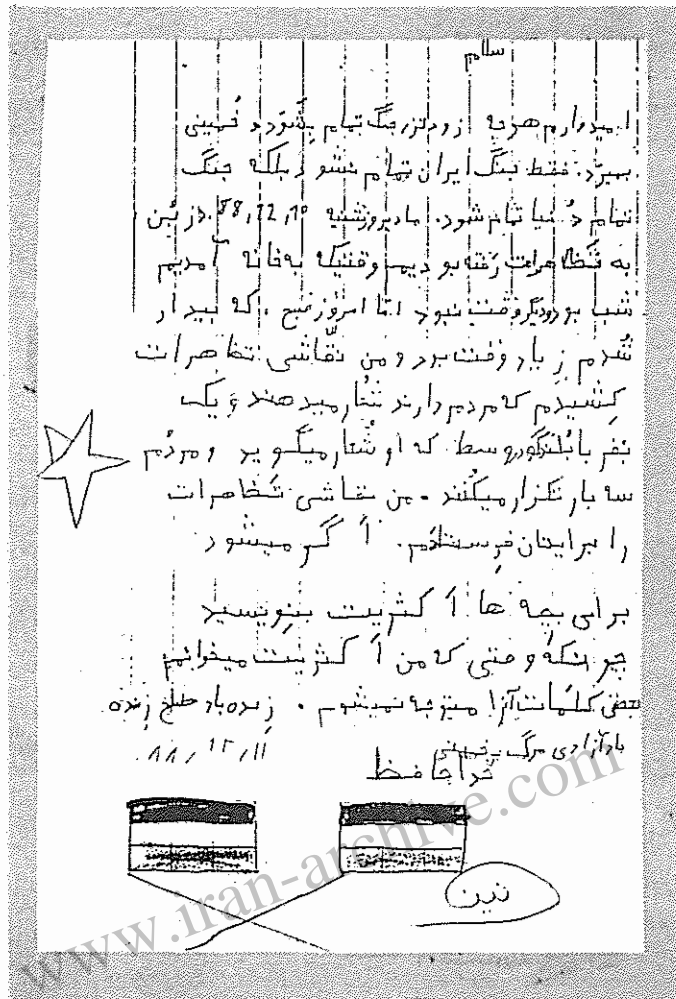 سلام
امیدوارم هرچه زودتر جنگ تمام بِشَوَد و خُمینی
بمیرَد. فقط جنگ ایران تمام نشود بلکه جنگ
تمام دُنیا تمام شود. ما دیروز شنبه 88,12,10 در بُن
به تَظاهرات رَفته بودیم وقتیکه به خانه آمدیم
شب بود و دیگر وقت نبود امّا امروز صُبح، که بیدار
شُدم زیاد وقت بود و من نَقّاشی تظاهرات
کِشیدم که مردم دارند شُعار میدهند وَ یک
نفر با بُلندگو در وسط که او شُعار میگوید و مردُم
سه بار تکرار میکُنند. من نقاشی تَظاهرات
را برایتان فِرستادَم. اَگر میشود
برای بچه ها اَکثریت بنویسید
چونکه وقتی که من اَکثریت میخوانم
بعضی کلمات آنرا متوجه نمیشوم. زنده باد صلح زنده
باد آزادی مرگ بر خمینی
۸۸,۱۲,۱۱
خُداحافظ
نین
www.iran-archive.com